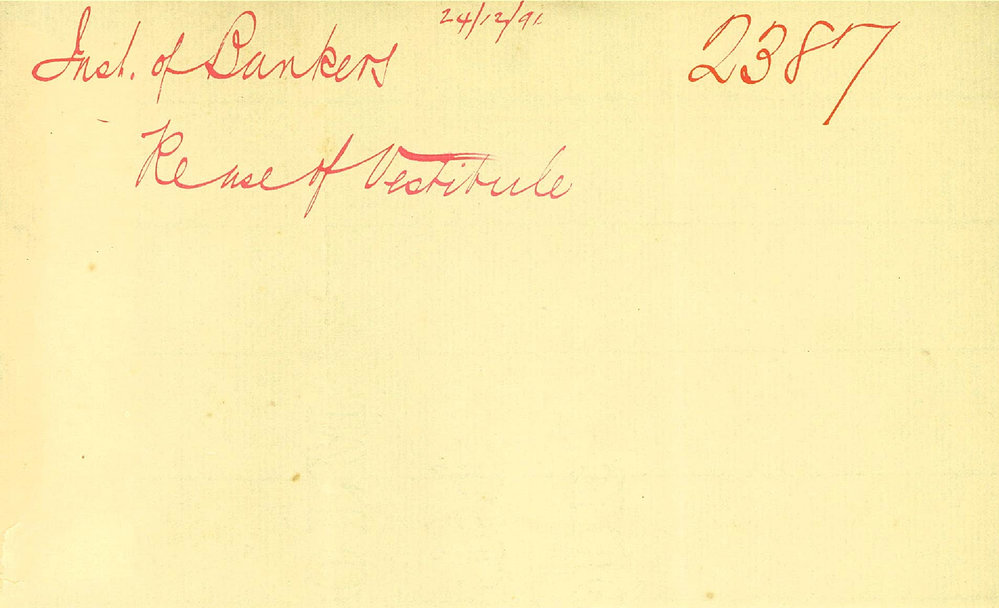 Inst. of Bankers 24/12/91 2387
Re use of Vestibule